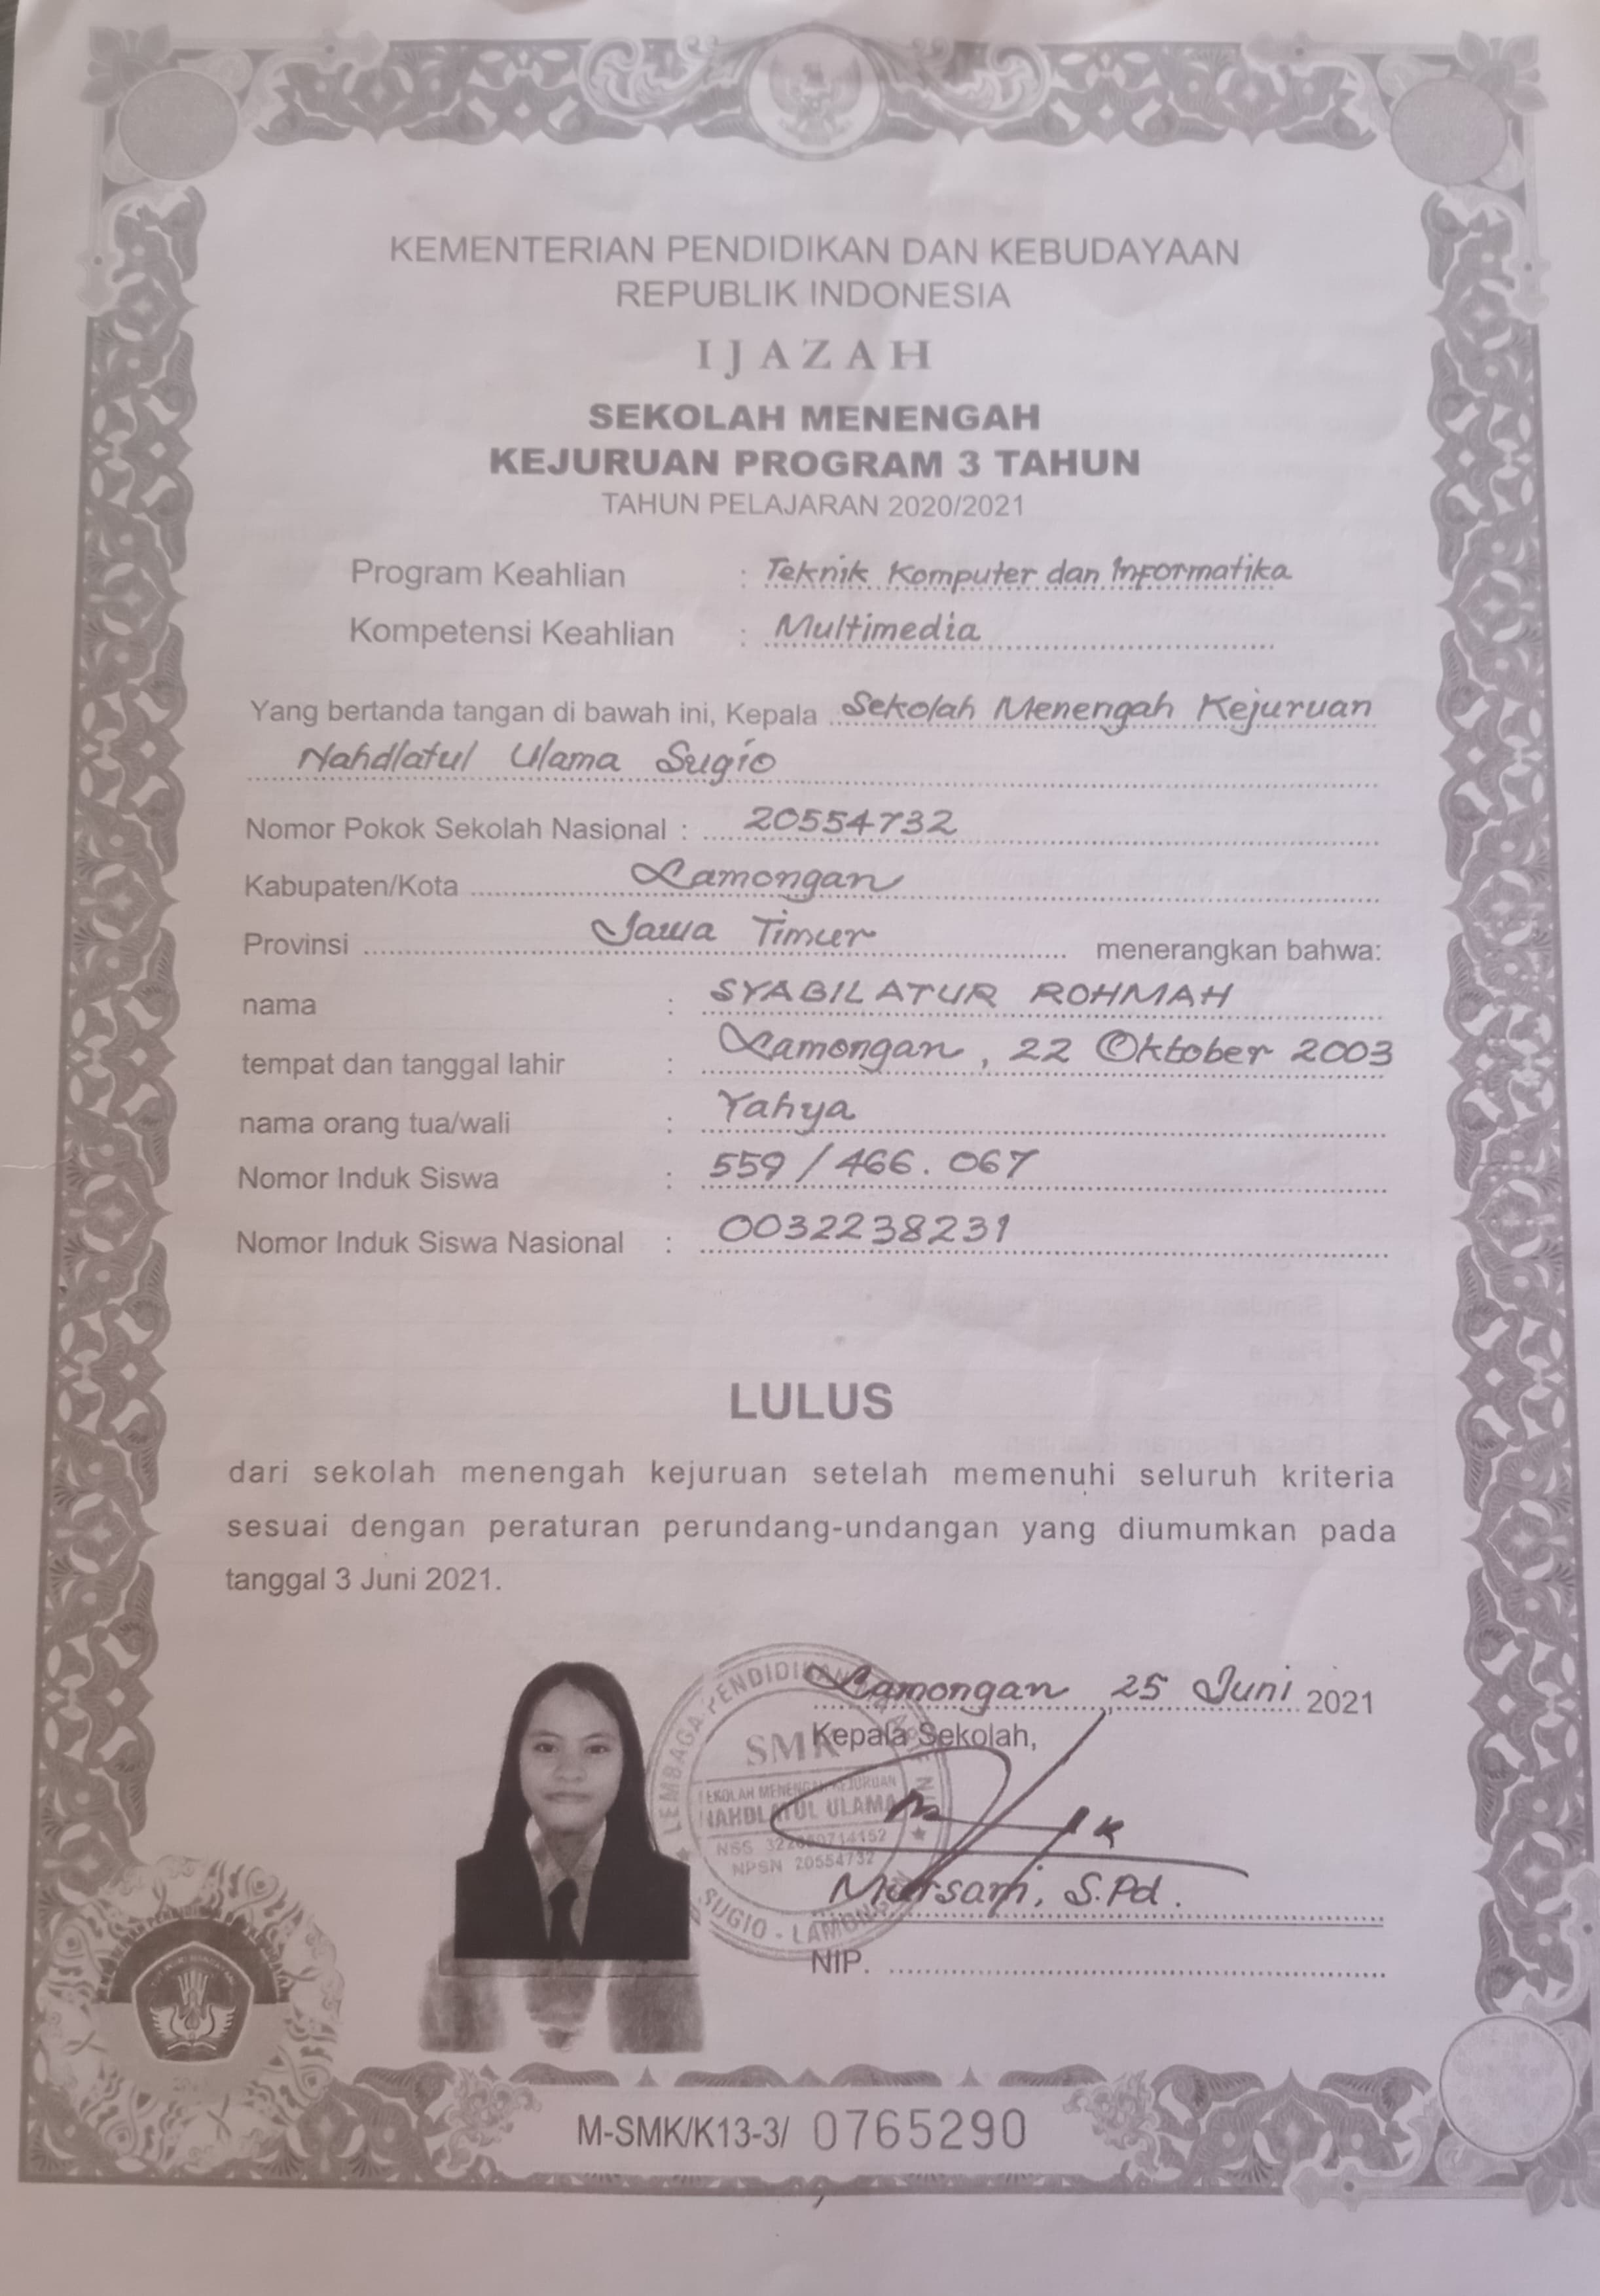 KEMENTERIAN PENDIDIKAN DAN KEBUDAYAAN
REPUBLIK INDONESIA
IJAZAH
SEKOLAH MENENGAH
KEJURUAN PROGRAM 3 TAHUN
TAHUN PELAJARAN 2020/2021
Program Keahlian : Teknik Komputer dan Informatika
Kompetensi Keahlian : Multimedia
Yang bertanda tangan di bawah ini, Kepala Sekolah Menengah Kejuruan
Nahdlatul Ulama Sugio
Nomor Pokok Sekolah Nasional : 20554732
Kabupaten/Kota Lamongan
Provinsi Jawa Timur menerangkan bahwa:
nama : SYABILATUR ROHMAH
tempat dan tanggal lahir : Lamongan, 22 Oktober 2003
nama orang tua/wali : Yahya
Nomor Induk Siswa : 559 / 466.067
Nomor Induk Siswa Nasional : 0032238231
LULUS
dari sekolah menengah kejuruan setelah memenuhi seluruh kriteria
sesuai dengan peraturan perundang-undangan yang diumumkan pada
tanggal 3 Juni 2021.
Lamongan, 25 Juni 2021
Kepala Sekolah,
LEMBAGA PENDIDIKAN
SMK
SEKOLAH MENENGAH KEJURUAN
NAHDLATUL ULAMA
NPSN 20554732
SUGIO - LAMONGAN
Mursam, S.Pd.
NIP.
M-SMK/K13-3/ 0765290